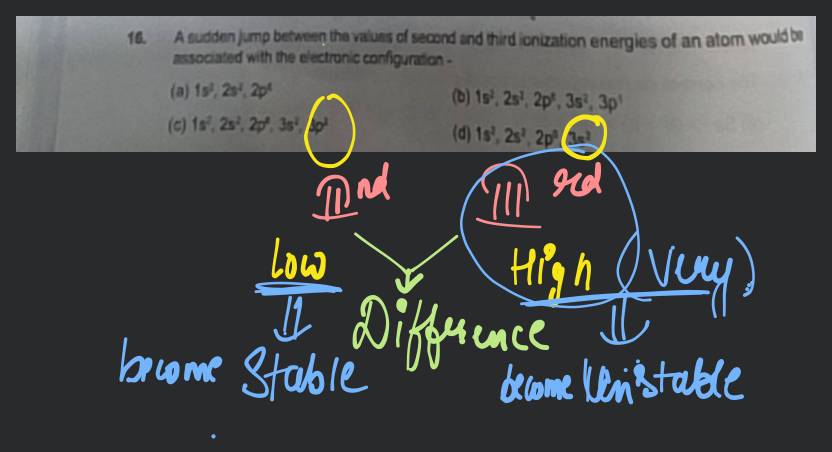 16. A sudden jump between the values of second and third ionization energies of an atom would be
associated with the electronic configuration -
(a) 1s², 2s², 2p⁶ (b) 1s², 2s², 2p⁶, 3s², 3p¹
(c) 1s², 2s², 2p⁶, 3s², 3p² (d) 1s², 2s², 2p⁶, 3s²
II nd III rd
Low High (Very)
Difference
become Stable become Unistable